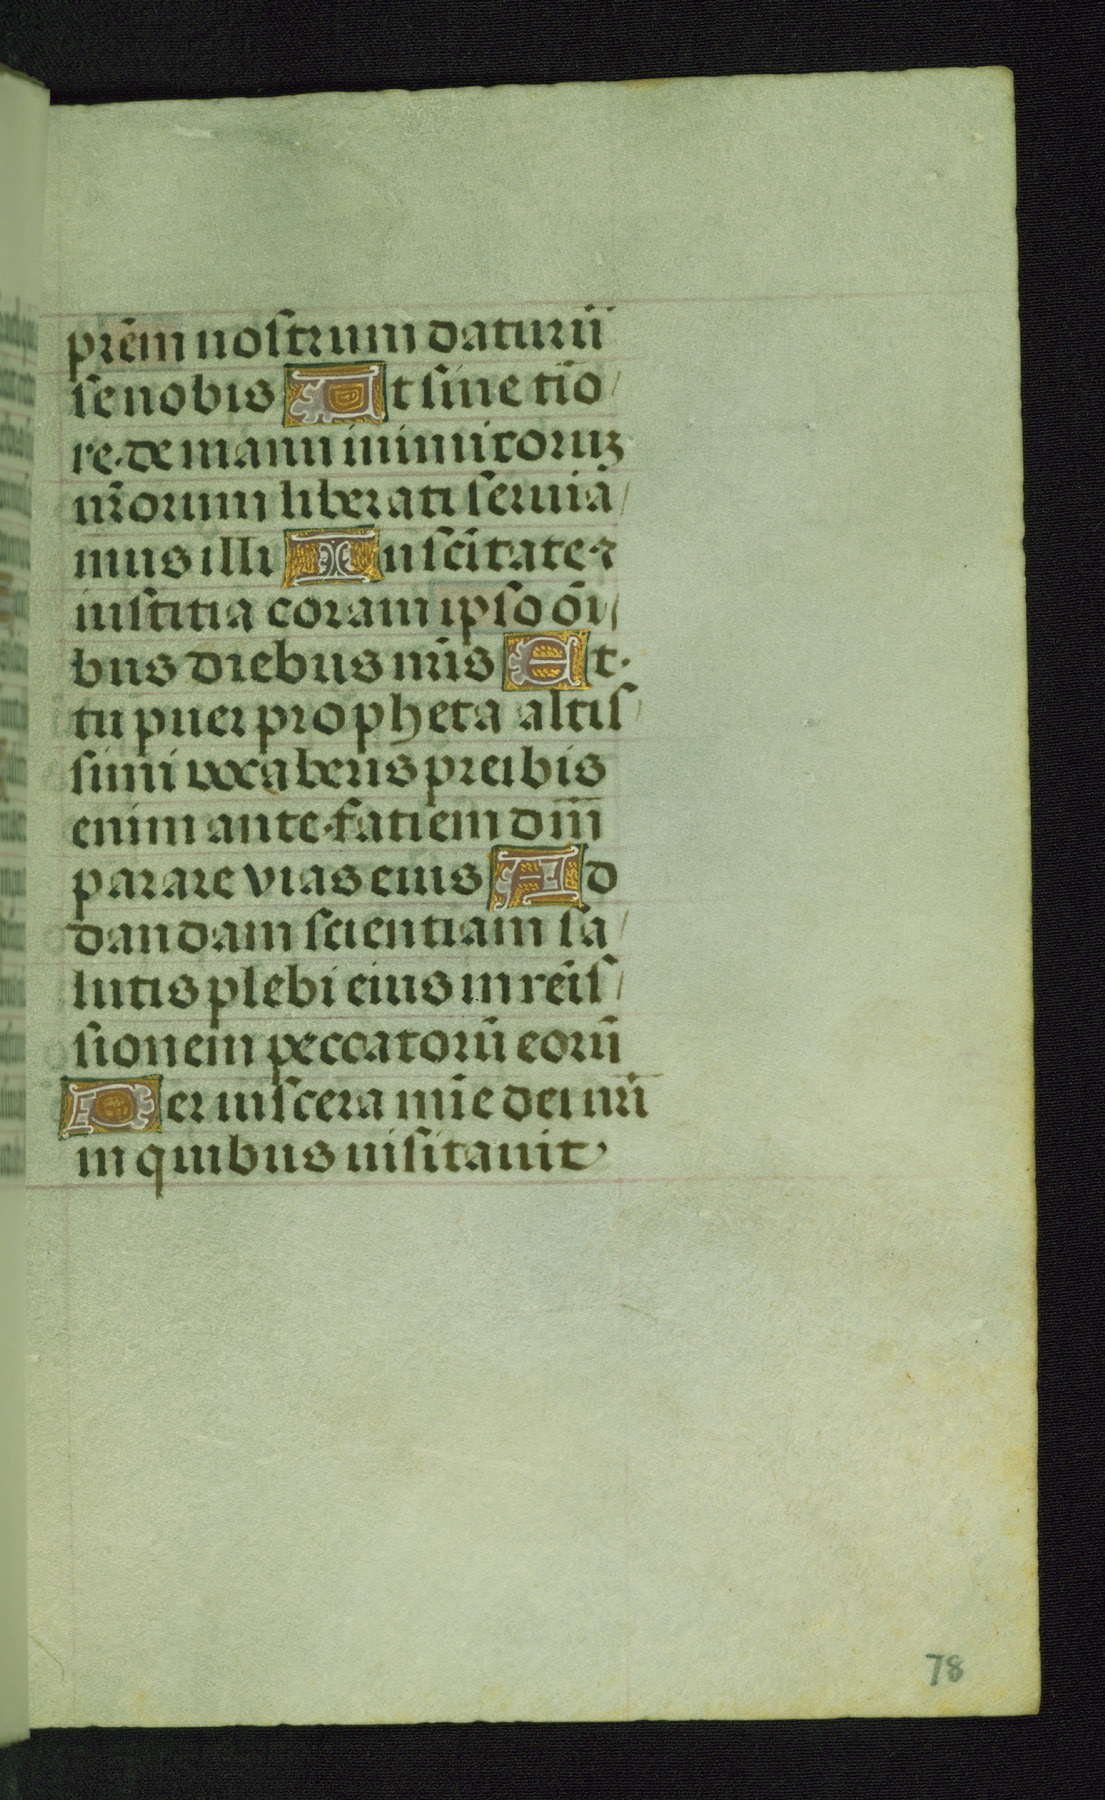 prēm nostrum daturū
se nobis Ut sine tīo/
re de manu inimicoruꝫ
nr̄orum liberati seruiā/
mus illi In scītate ⁊
iusticia coram ipso oī/
bus diebus nr̄is Et
tu puer propheta altis/
simi vocaberis preibis
enim ante fatiem dm̄i
parare vias eius Ad
dandam scientiam sa/
lutis plebi eius in reīs/
sionem peccatorū eorū
Per uiscera mīe dei nr̄i
in quibus uisitauit
78